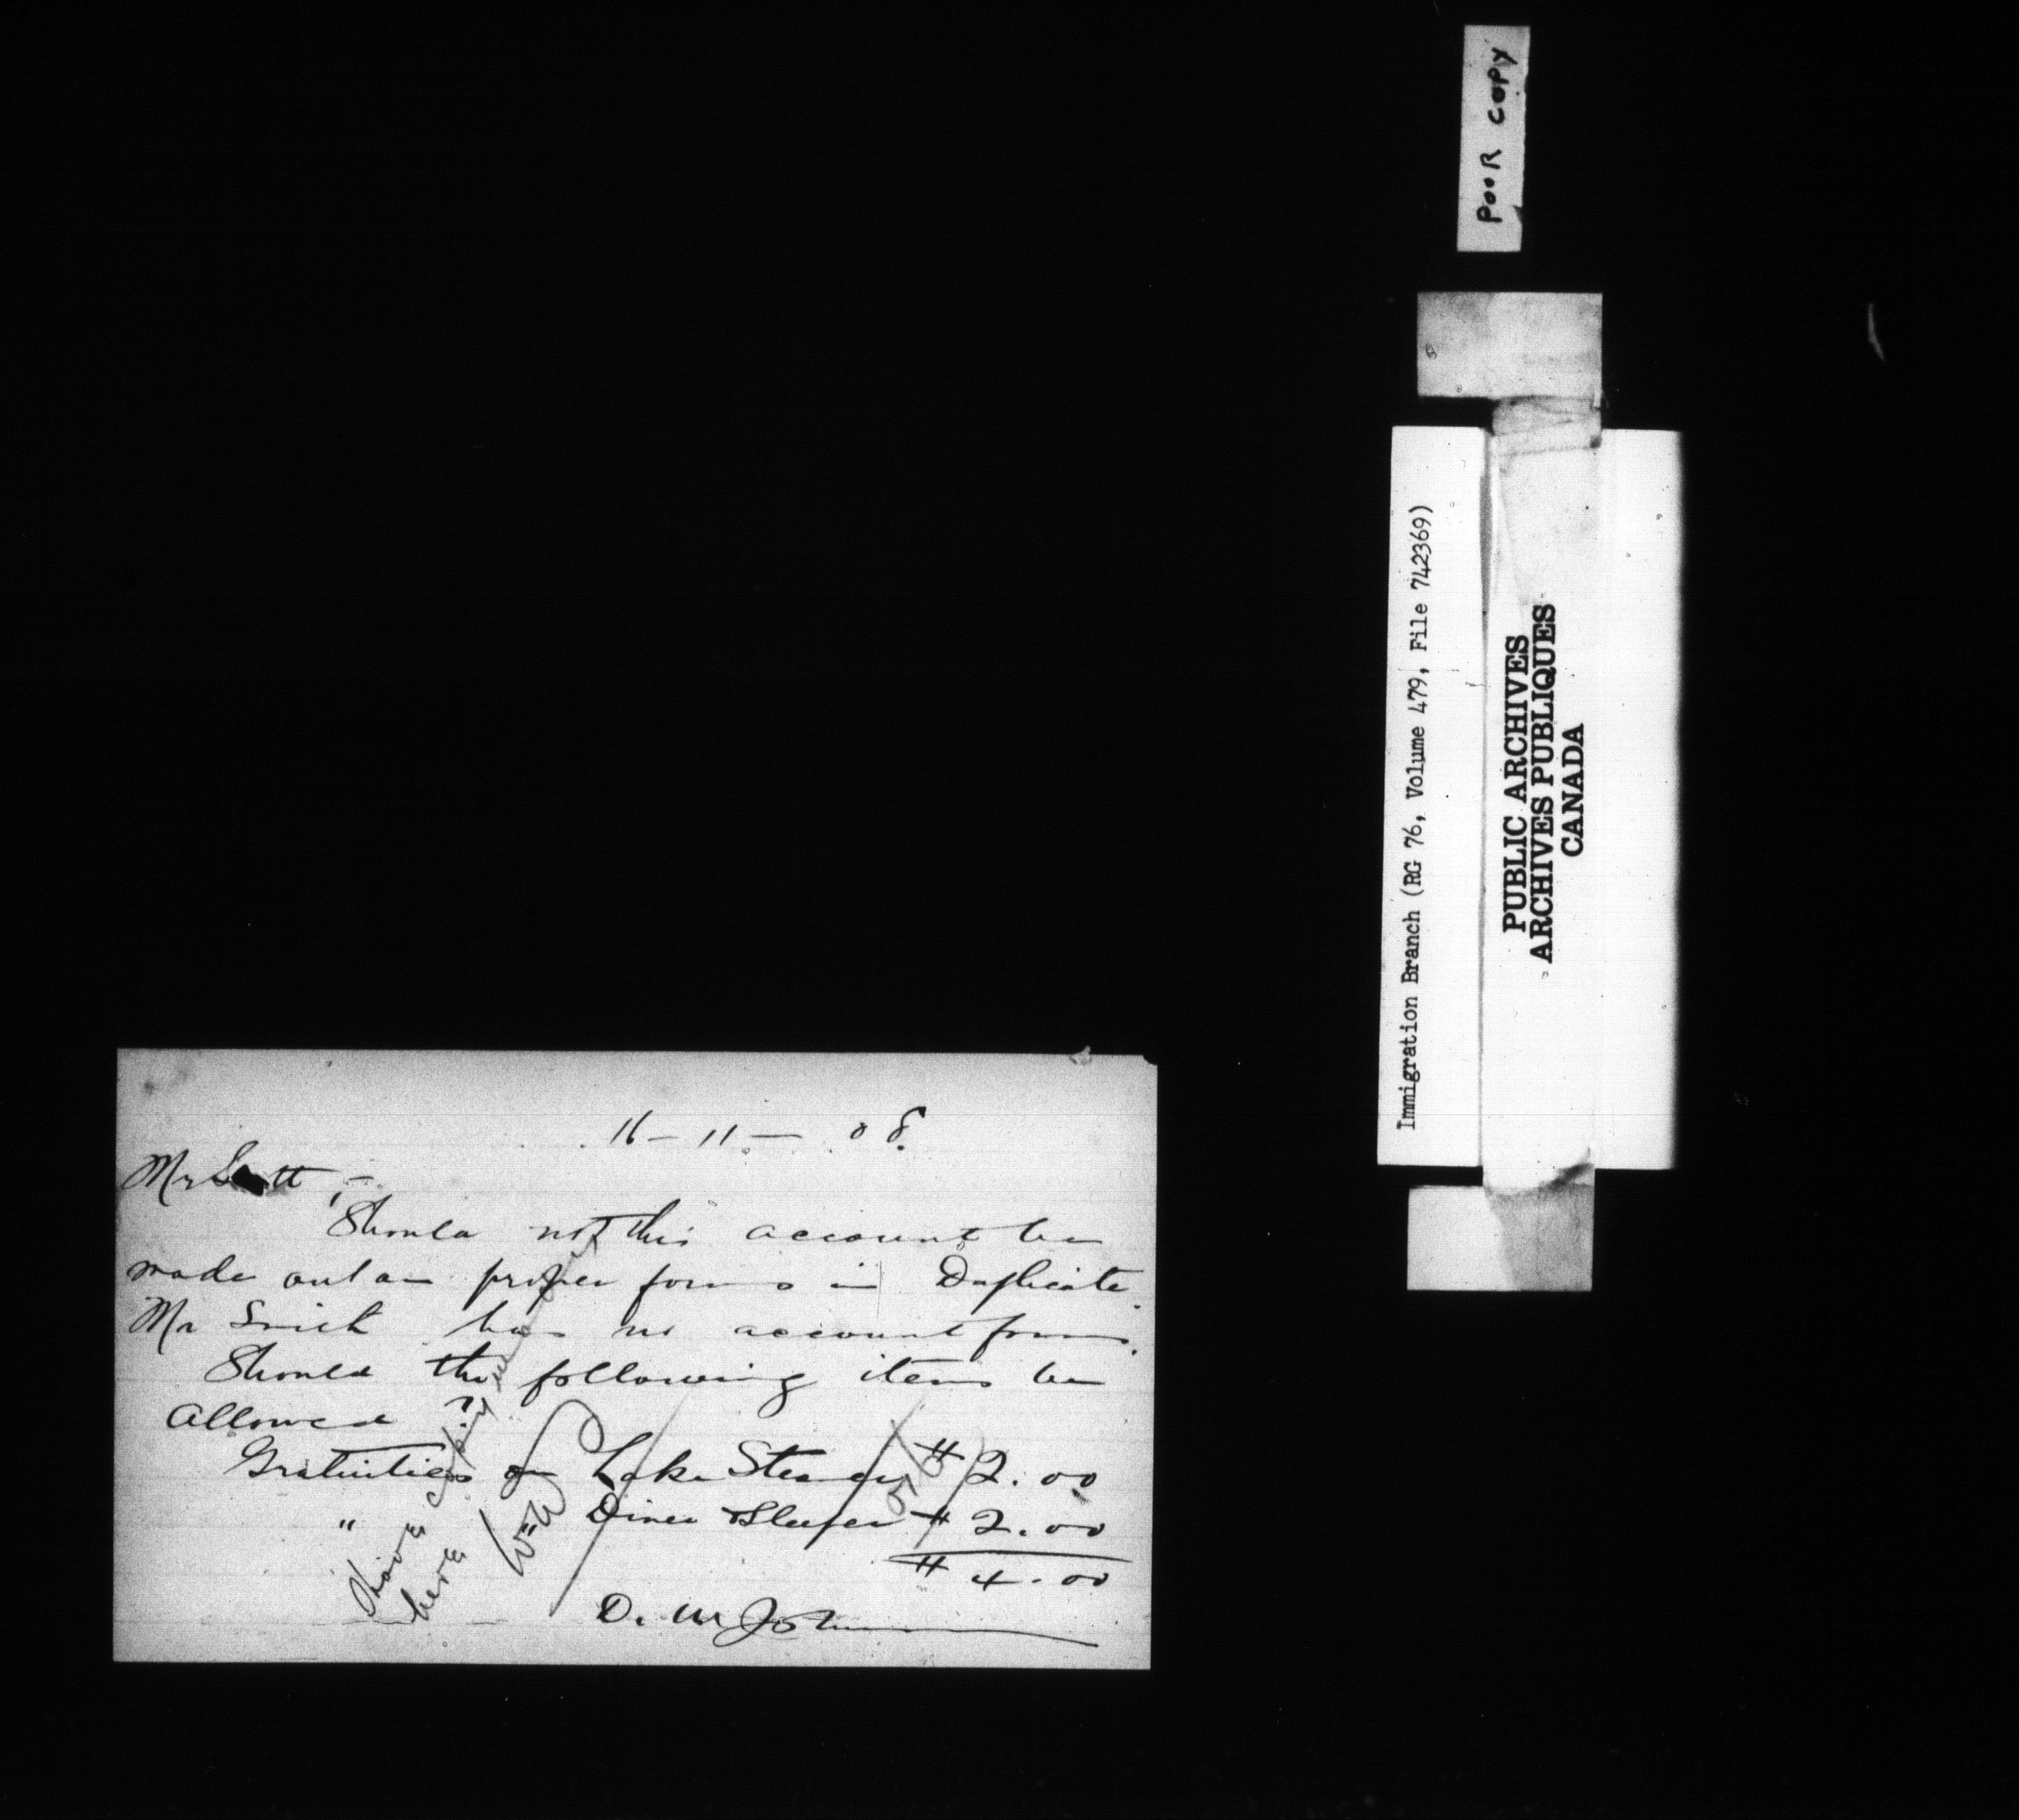 POOR COPY
Immigration Branch (RG 76, Volume 479, File 742369)
PUBLIC ARCHIVES
ARCHIVES PUBLIQUES
CANADA
16-11- 08.
Mr Scott,-
Should not this account be
made out on proper forms in Duplicate.
Mr Smith has no account forms.
Should the following items be
allowed ?
Gratuities on Lake Steamer $2.00
" Diner & Sleeper $2.00
$4.00
D. M. Johnson
Have copy made
here
O.K.